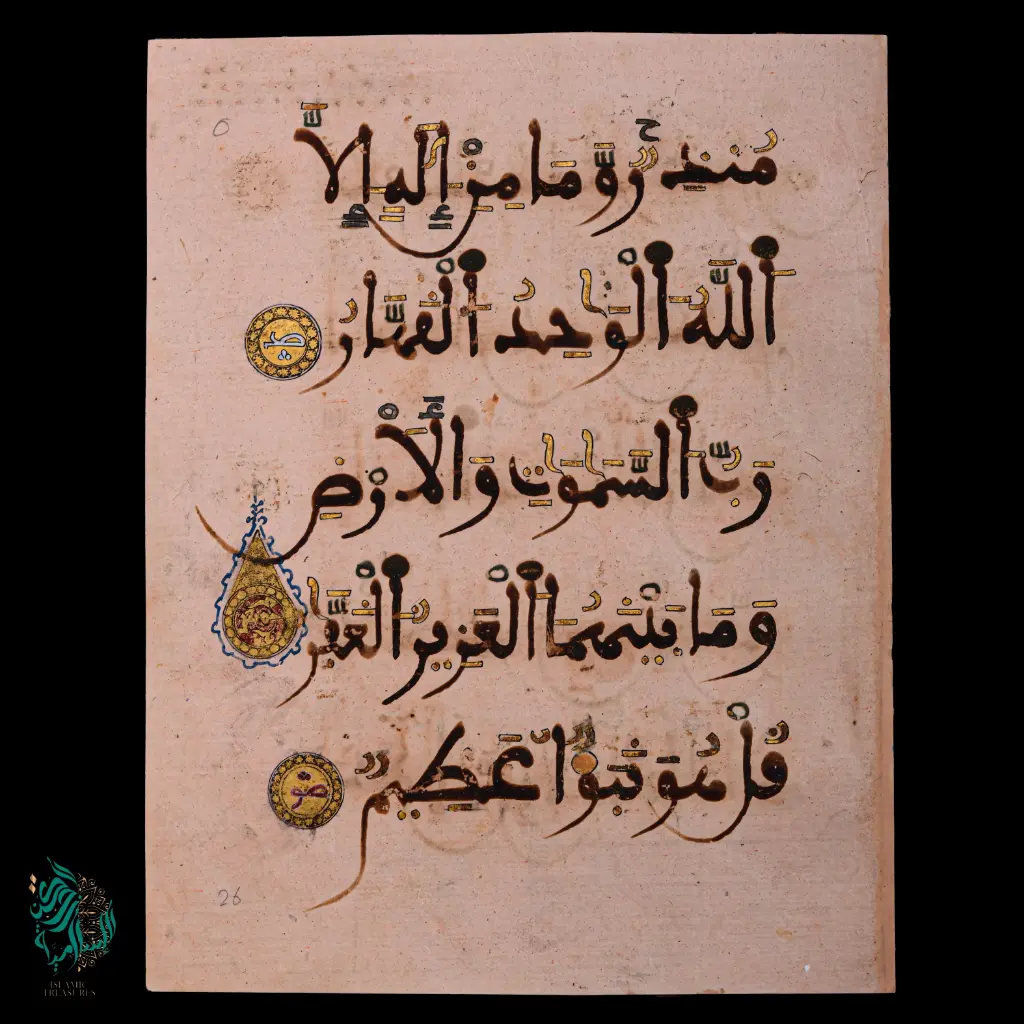 مُنذِرٌ وَّمَا مِنْ إِلَٰهٍ إِلَّا
اَللَّهُ اُلْوَٰحِدُ اُلْقَهَّارُ
رَبُّ اُلسَّمَٰوَٰتِ وَالْأَرْضِ
وَمَا بَيْنَهُمَا اَلْعَزِيزُ اُلْغَفَّٰرُ
قُلْ هُوَ نَبَؤٌا عَظِيمٌ
0
26
ISLAMIC
TREASURES